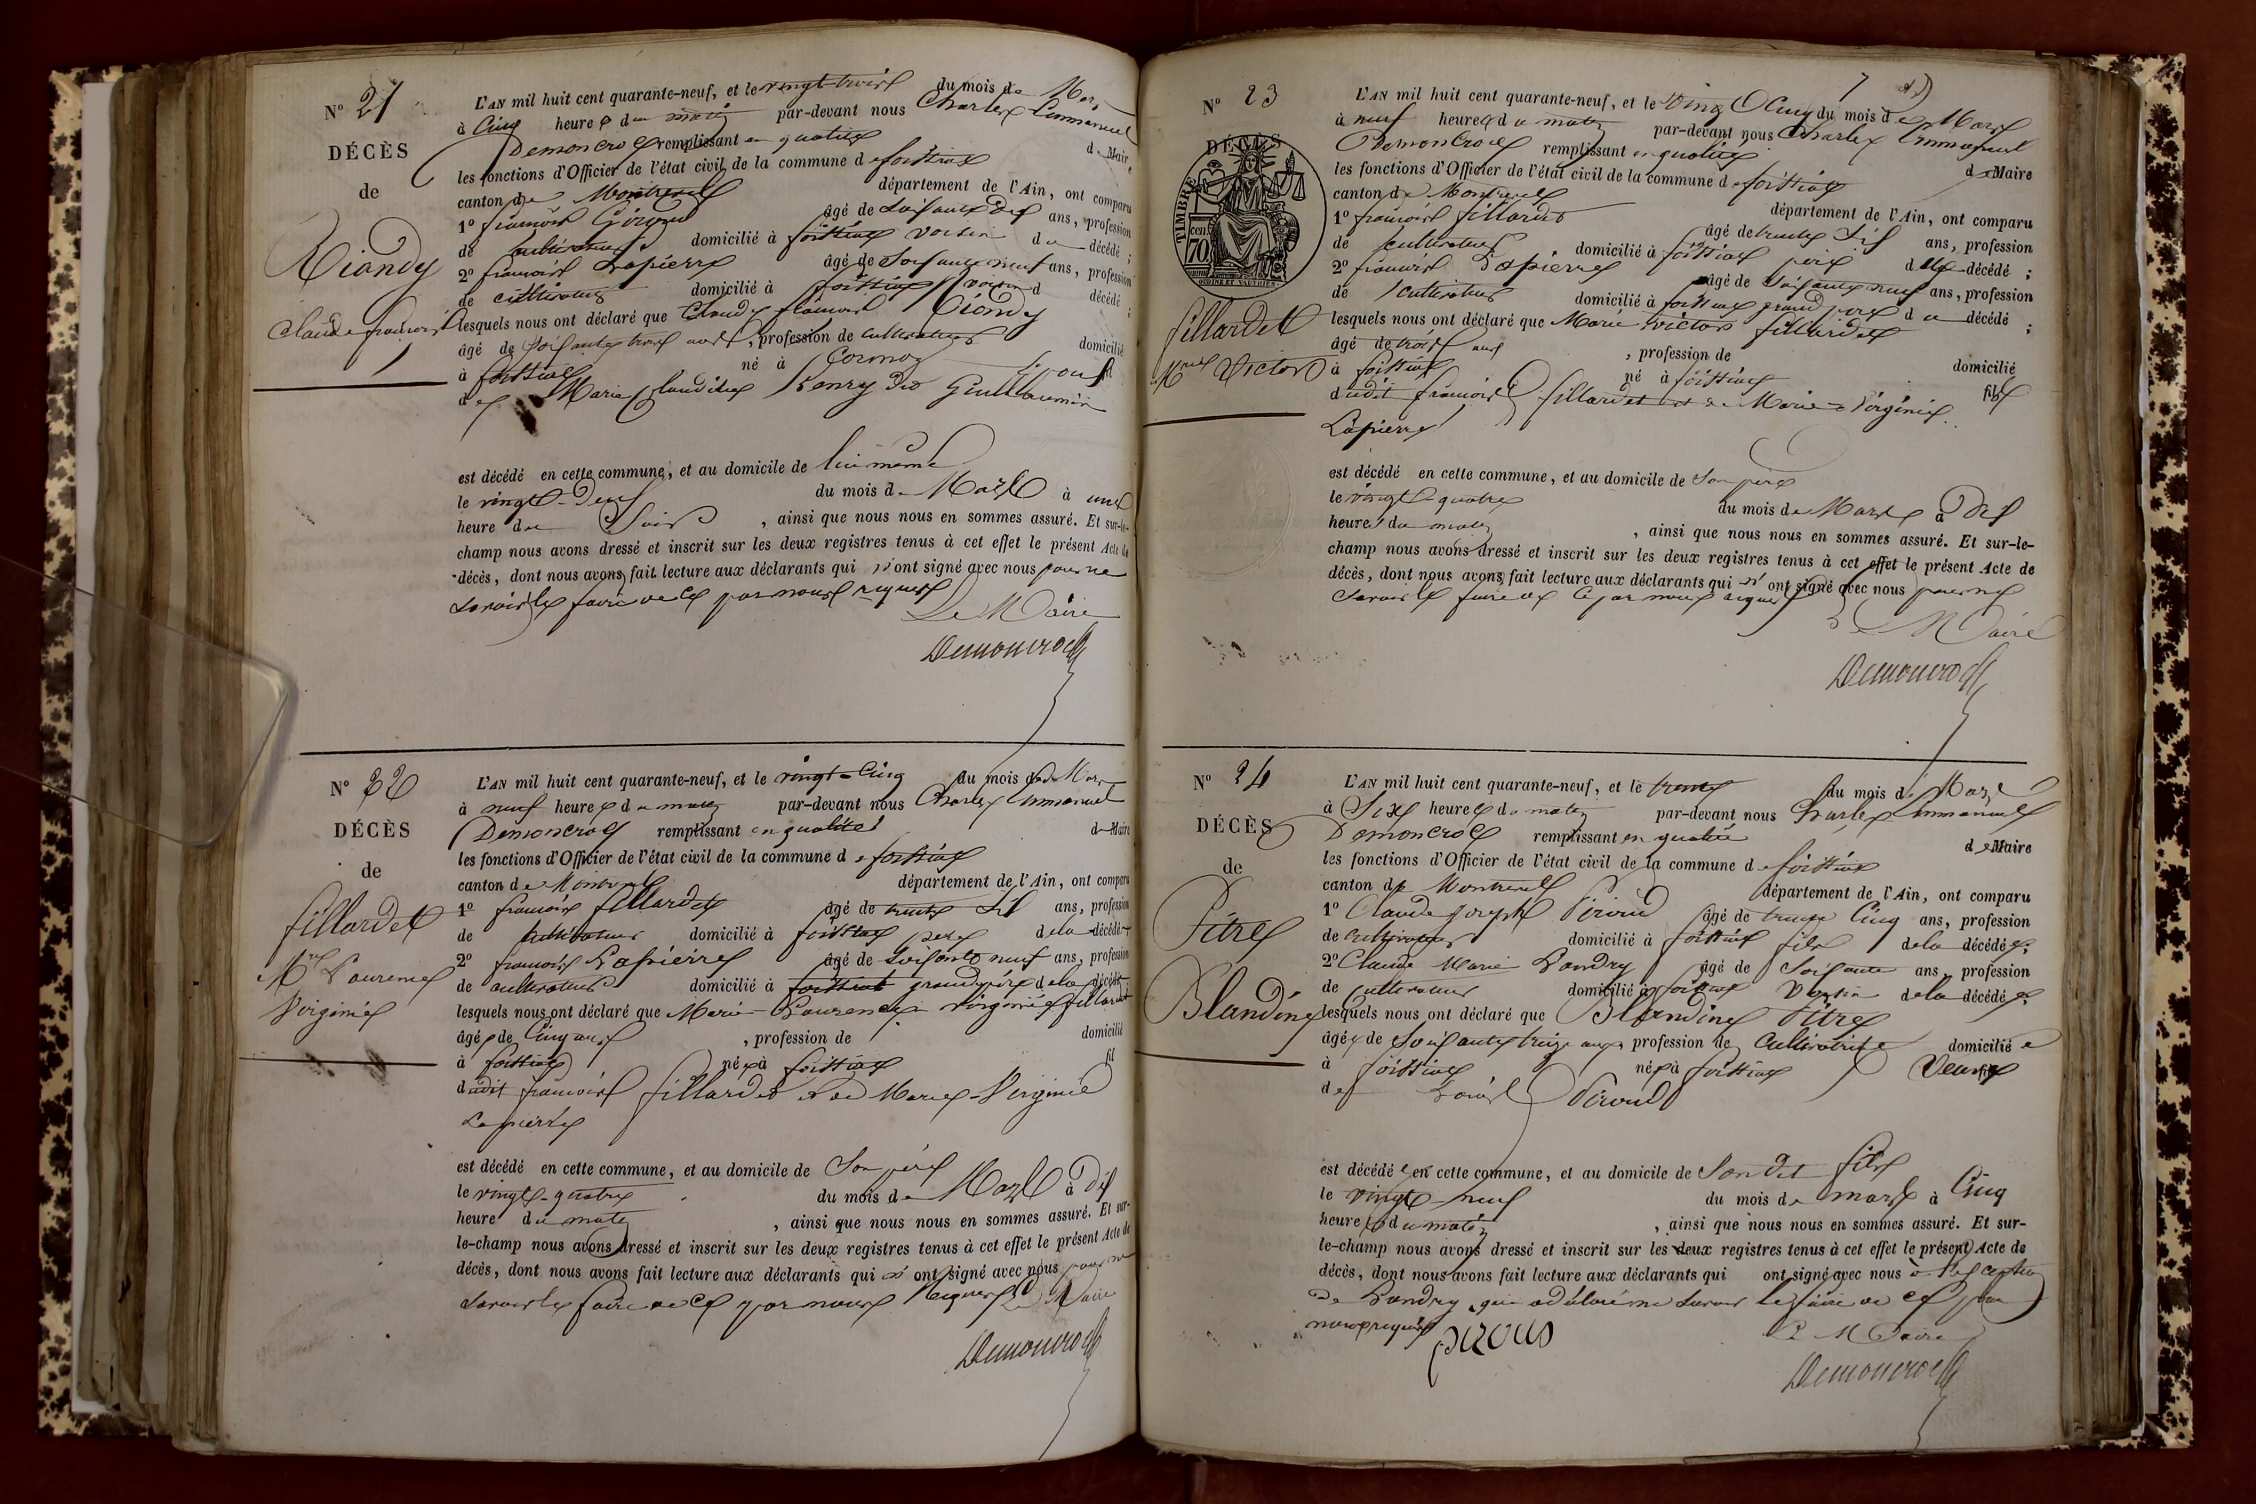 N° 21
DÉCÈS
de
Riandy
Claude françois
L'AN mil huit cent quarante-neuf, et le vingt-trois du mois de Mars
à Cinq heures du matin par-devant nous Charles Emmanuel
Demoncroc remplissant en qualité de Maire
les fonctions d'Officier de l'état civil de la commune de foissiat
canton de Montrevel département de l'Ain, ont comparu
1° françois âgé de Soixante Dix ans, profession
de cultivateur domicilié à foissiat voisin du décédé ;
2° françois Lapierre âgé de Soixante neuf ans, profession
de cultivateur domicilié à foissiat voisin d décédé ;
lesquels nous ont déclaré que Claude françois
âgé de Soixante trois ans, profession de cultivateur domicilié
à foissiat né à Cormoz Epoux
de Marie Claudine
est décédé en cette commune, et au domicile de lui même
le vingt-Deux du mois de Mars à une
heure du Soir , ainsi que nous nous en sommes assuré. Et sur-le-
champ nous avons dressé et inscrit sur les deux registres tenus à cet effet le présent Acte de
décès, dont nous avons fait lecture aux déclarants qui n'ont signé avec nous pour ne
Savoir le faire de ce par nous requis
Le Maire
Demoncroc
N° 22
DÉCÈS
de
fillardet
Mrie Laurence
Virginie
L'AN mil huit cent quarante-neuf, et le vingt-Cinq du mois de Mars
à neuf heures du matin par-devant nous Charles Emmanuel
Demoncroc remplissant en qualité de Maire
les fonctions d'Officier de l'état civil de la commune de foissiat
canton de Montrevel département de l'Ain, ont comparu
1° françois fillardet âgé de trente Six ans, profession
de cultivateur domicilié à foissiat père de la décédée
2° françois Lapierre âgé de Soixante neuf ans, profession
de cultivateur domicilié à foissiat grand père de la décédée
lesquels nous ont déclaré que Marie-Laurence virginie fillardet
âgée de Cinq ans , profession de domicilié
à foissiat née à foissiat fil
dudit françois fillardet et de Marie-Virginie
Lapierre
est décédé en cette commune, et au domicile de Son père
le vingt-quatre du mois de Mars à Dix
heure du matin , ainsi que nous nous en sommes assuré. Et sur-
le-champ nous avons dressé et inscrit sur les deux registres tenus à cet effet le présent Acte de
décès, dont nous avons fait lecture aux déclarants qui n'ont signé avec nous pour ne
Savoir le faire de ce par nous Requis Le Maire
Demoncroc
N° 23
DÉCÈS
TIMBRE
70
fillardet
Mrie Victor
L'AN mil huit cent quarante-neuf, et le Vingt Cinq du mois de Mars
à neuf heures du matin par-devant nous Charles Emmanuel
Demoncroc remplissant en qualité de Maire
les fonctions d'Officier de l'état civil de la commune de foissiat
canton de Montrevel département de l'Ain, ont comparu
1° françois fillardet âgé de trente Six ans, profession
de cultivateur domicilié à foissiat père du décédé ;
2° françois Lapierre âgé de Soixante neuf ans, profession
de cultivateur domicilié à foissiat grand père du décédé ;
lesquels nous ont déclaré que Marie Victor fillardet
âgé de trois ans , profession de domicilié
à foissiat né à foissiat fils
dudit françois fillardet et de Marie Virginie
Lapierre
est décédé en cette commune, et au domicile de Son père
le vingt-quatre du mois de Mars à Dix
heure du matin , ainsi que nous nous en sommes assuré. Et sur-le-
champ nous avons dressé et inscrit sur les deux registres tenus à cet effet le présent Acte de
décès, dont nous avons fait lecture aux déclarants qui n'ont signé avec nous pour ne
Savoir le faire de ce par nous requis
Le Maire
Demoncroc
N° 24
DÉCÈS
de
Pitre
Blandine
L'AN mil huit cent quarante-neuf, et le trente du mois de Mars
à Six heures du matin par-devant nous Charles Emmanuel
Demoncroc remplissant en qualité de Maire
les fonctions d'Officier de l'état civil de la commune de foissiat
canton de Montrevel département de l'Ain, ont comparu
1° Claude Joseph Piroud âgé de trente Cinq ans, profession
de cultivateur domicilié à foissiat fils de la décédée ;
2° Claude Marie Landry âgé de Soixante ans, profession
de cultivateur domicilié à foissiat Voisin de la décédée ;
lesquels nous ont déclaré que Blandine Pitre
âgée de Soixante treize ans, profession de Cultivatrice domiciliée
à foissiat née à foissiat Veuve
de Louis Piroud
est décédée en cette commune, et au domicile de Son Dit fils
le vingt neuf du mois de mars à Cinq
heures du matin , ainsi que nous nous en sommes assuré. Et sur-
le-champ nous avons dressé et inscrit sur les deux registres tenus à cet effet le présent Acte de
décès, dont nous avons fait lecture aux déclarants qui ont signé avec nous à l'exception
de Landry qui a déclaré ne Savoir le faire de ce par
nous requis
Le Maire
Demoncroc